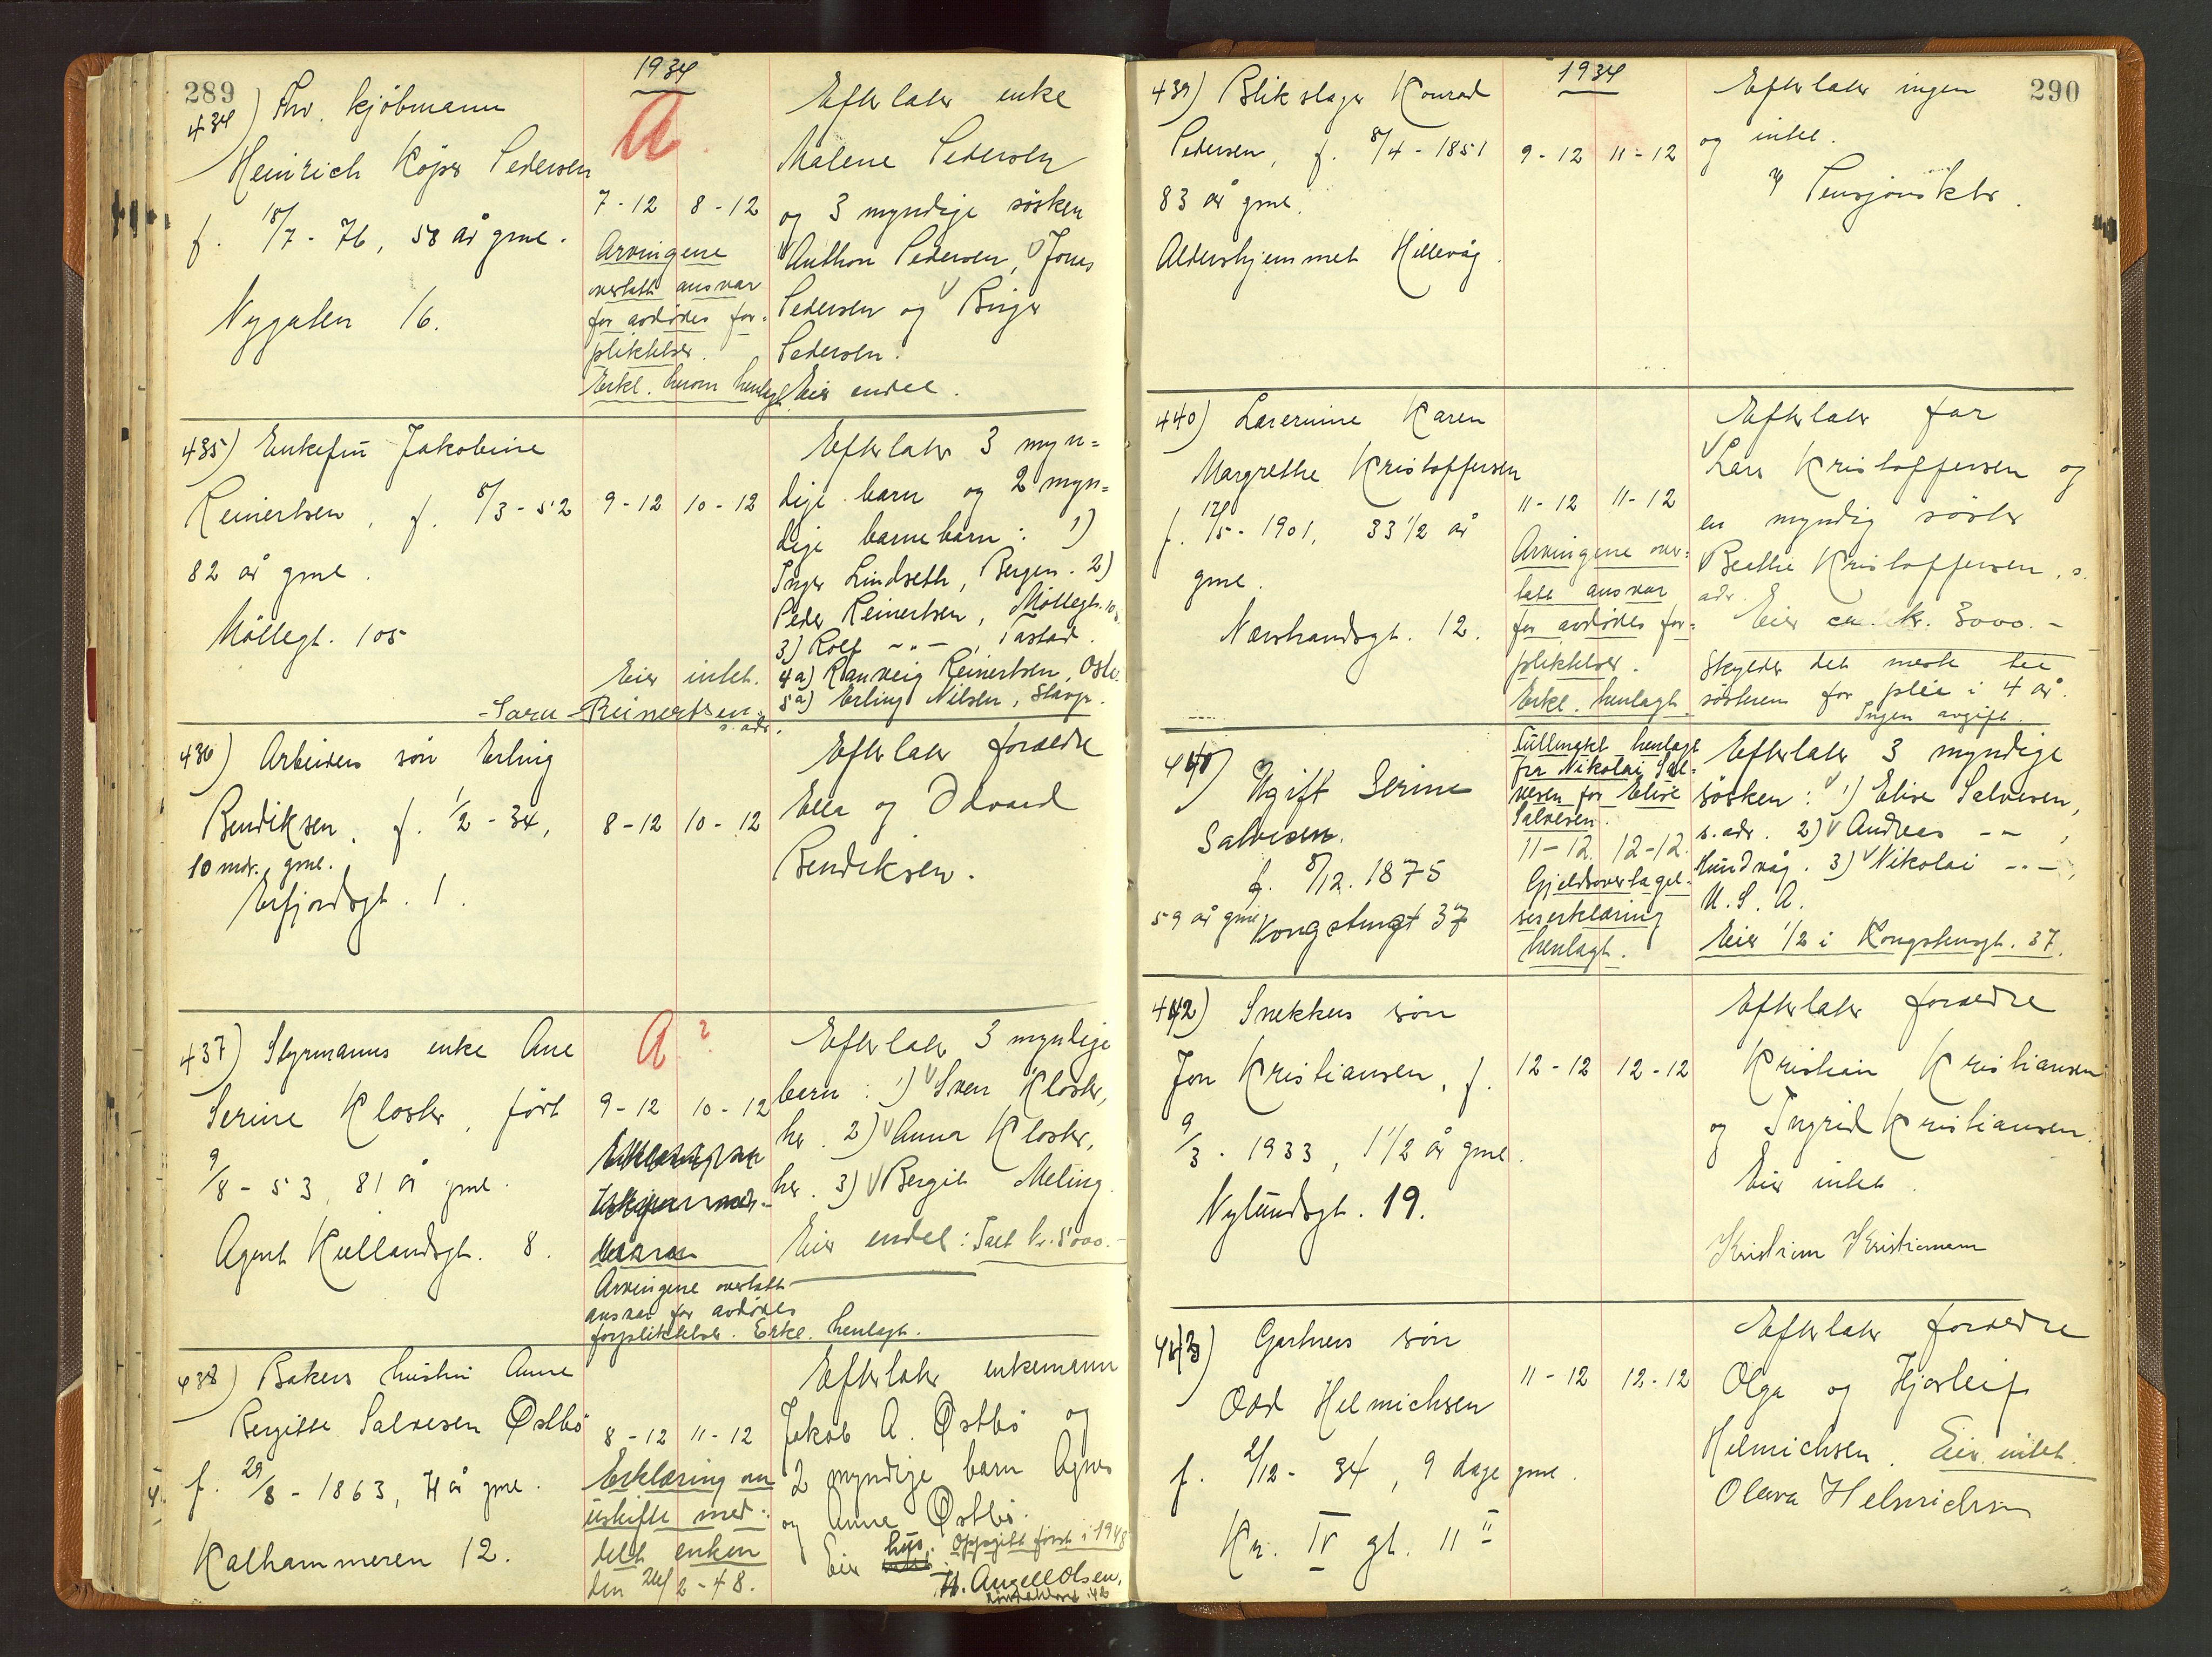 289
1934
434) Fhv. kjøbmann
Heinrich Køpp Pedersen
f. 18/7 - 76, 58 år gml.
Nygaten 16.
A
7-12 8-12
Arvingene
overtatt ansvar
for avdødes for-
pliktelser.
Erkl. herom henlagt.
Efterlater enke
Malene Pedersen
og 3 myndige søsken
Anthon Pedersen, Jonas
Pedersen og Birger
Pedersen.
Eier endel.
435) Enkefru Jakobine
Reinertsen, f. 8/3 - 52
82 år gml.
Møllegt. 105
9-12 10-12
Eier intet.
Sara Reinertsen
s. adr.
Efterlater 3 myn-
dige barn og 2 myn-
dige barnebarn: 1)
Inger Lindseth, Bergen. 2)
Peder Reinertsen, Møllegt. 105
3) Rolf -"-, Tastad.
4a) Ranveig Reinertsen, Oslo.
5a) Erling Nilsen, Stavgr.
436) Arbeiders søn Erling
Bendiksen, f. 1/2 - 34,
10 mdr. gml.
Erfjordsgt. 1.
8-12 10-12
Efterlater foreldre
Ella og Edvard
Bendiksen.
437) Styrmanns enke Ane
Serine Kloster, født
9/8 - 53, 81 år gml.
Agent Kiellandsgt. 8.
A ?
9-12 10-12
Arvingene overtatt
ansvar for avdødes
forpliktelser. Erkl. henlagt.
Efterlater 3 myndige
barn: 1) Sven Kloster,
her. 2) Anna Kloster,
her. 3) Bergit Meling.
Eier endel: Talt kr. 5000.-
438) Bakers hustru Anne
Bergitte Salvesen Østbø
f. 29/8 - 1863, 71 år gml.
Kalhammeren 12.
8-12 11-12
Erklæring om
uskifte med-
delt enken
den 24/2-48.
Efterlater enkemann
Jakob A. Østbø og
2 myndige barn Agnes
og Anna Østbø.
Eier hus. Oppgitt først i 1948
H. Angell Olsen,
290
1934
439) Blikslager Konrad
Pedersen, f. 8/4 - 1851
83 år gml.
Aldershjemmet Hillevåg.
9-12 11-12
Efterlater ingen
og intet.
Pensjonsktr.
440) Lærerinne Karen
Margrethe Kristoffersen
f. 12/5 - 1901, 33 1/2 år
gml.
Nærstrandsgt. 12.
11-12 11-12
Arvingene over-
tatt ansvar
for avdødes for-
pliktelser.
Erkl. henlagt.
Efterlater far
Lars Kristoffersen og
en myndig søster
Berthe Kristoffersen, s.
adr.
Eier ca. kr. 3000.-
Skylder det meste til
søsteren for pleie i 4 år.
Ingen avgift.
441) Ugift Serine
Salvesen.
f. 8/12. 1875
59 år gml.
Kongstensgt 37
Fullmakt henlagt
fra Nikolai Sal-
vesen for Elise
Salvesen.
11-12. 12-12.
Gjeldsovertagel-
seserklæring
henlagt.
Efterlater 3 myndige
søsken: 1) Elise Salvesen,
s. adr. 2) Andreas -"-,
Hundvåg. 3) Nikolai -"-,
U.S.A.
Eier 1/2 i Kongstensgt. 37.
442) Snekkers søn
Jon Kristiansen, f.
9/3 - 1933, 1 1/2 år gml.
Nylundsgt. 19.
12-12 12-12
Efterlater foreldre
Kristian Kristiansen
og Ingrid Kristiansen.
Eier intet.
Kristian Kristiansen
443) Gartners søn
Odd Helmichsen
f. 2/12 - 34, 9 dage gml.
Kr. IV gt. 11 II
11-12 12-12
Efterlater foreldre
Olga og Hjorleif
Helmichsen. Eier intet.
Olava Helmichsen